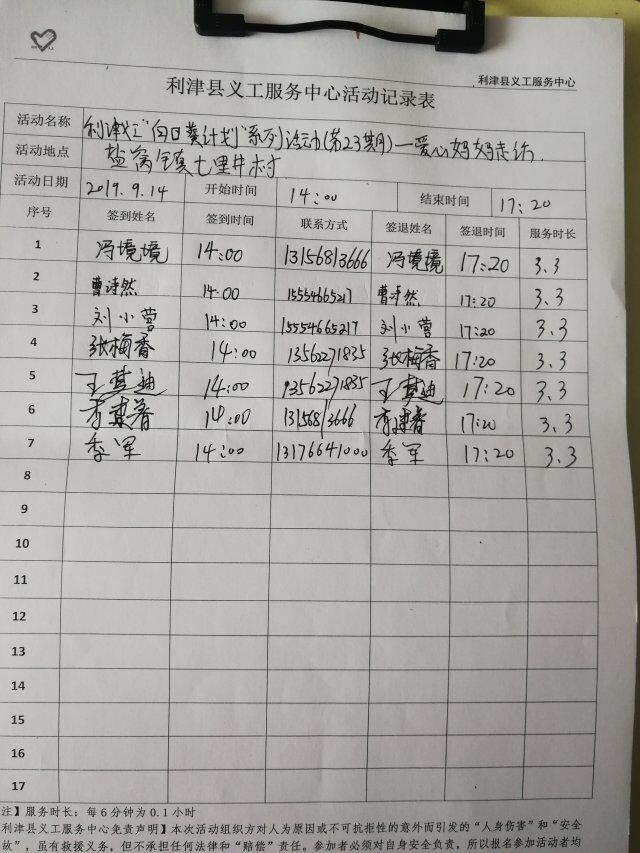 利津县义工服务中心
利津县义工服务中心活动记录表
活动名称 利津义工"向日葵计划"系列活动(第23期)—爱心妈妈走访
活动地点 盐窝镇七里井村
活动日期 2019.9.14 开始时间 14:00 结束时间 17:20
序号 签到姓名 签到时间 联系方式 签退姓名 签退时间 服务时长
1 冯境境 14:00 13156813666 冯境境 17:20 3.3
2 曹诗然 14:00 15554665217 曹诗然 17:20 3.3
3 刘小营 14:00 15554665217 刘小营 17:20 3.3
4 张梅香 14:00 13562271835 张梅香 17:20 3.3
5 14:00 13562271835 17:20 3.3
6 14:00 13156813666 17:20 3.3
7 季军 14:00 13176641000 季军 17:20 3.3
8
9
10
11
12
13
14
15
16
17
注】服务时长：每6分钟为0.1小时
利津县义工服务中心免责声明】本次活动组织方对人为原因或不可抗拒性的意外而引发的“人身伤害”和“安全
故”，虽有救援义务，但不承担任何法律和“赔偿”责任。参加者必须对自身安全负责，所以报名参加活动者均